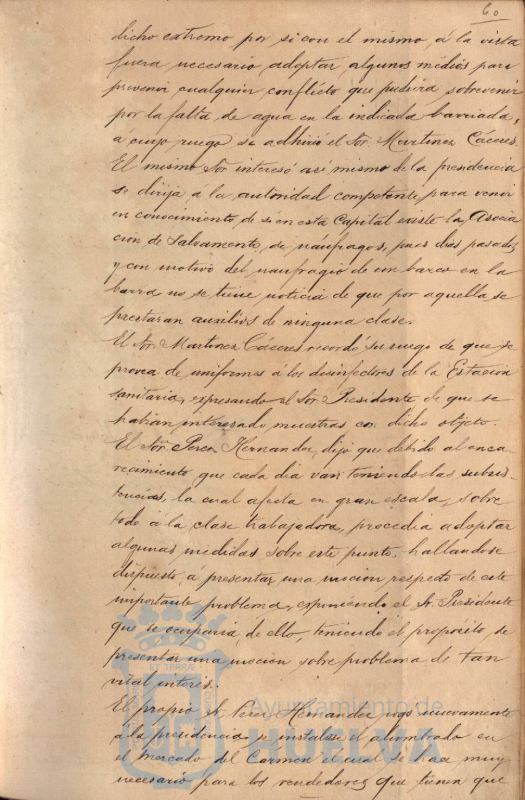 60
dicho extremo por si con el mismo, á la vista
fuera necesario adoptar algunos medios para
prevenir cualquier conflicto que pudiera sobrevenir
por la falta de agua en la indicada barriada,
á cuyo ruego se adhirió el Sor. Martinez Cáceres.
El mismo Sor interesó asi mismo de la presidencia
se dirija á la autoridad competente para venir
en conocimiento, de si en esta Capital existe la Asocia
cion de Salvamento de náufragos, pues dias pasados
y con motivo del naufragio de un barco en la
barra no se tiene noticia de que por aquella se
prestaran auxilios de ninguna clase.
El Sor. Martinez Cáceres recordó su ruego de que se
provea de uniformes á los desinfectores de la Estacion
sanitaria, expresando el Sor. Presidente de que se
habian interesado muestras con dicho objeto.
El Sor. Perez Hernandez, dijo que debido al enca-
recimiento que cada dia van teniendo las subsis-
tencias, la cual afecta en gran escala, sobre
todo á la clase trabajadora, procedia adoptar
algunas medidas sobre este punto, hallandose
dispuesto, á presentar una mocion, respecto de este
importante problema, exponiendo el Sr. Presidente
que se ocuparia de ello, teniendo el propósito, de
presentar una mocion sobre problema de tan
vital interés.
El propio Sr. Perez Hernandez rogó nuevamente
á la presidencia se instalase el alumbrado en
el Mercado del Carmen el cual se hace muy
necesario para los vendedores que tienen que
Ayuntamiento de
HUELVA